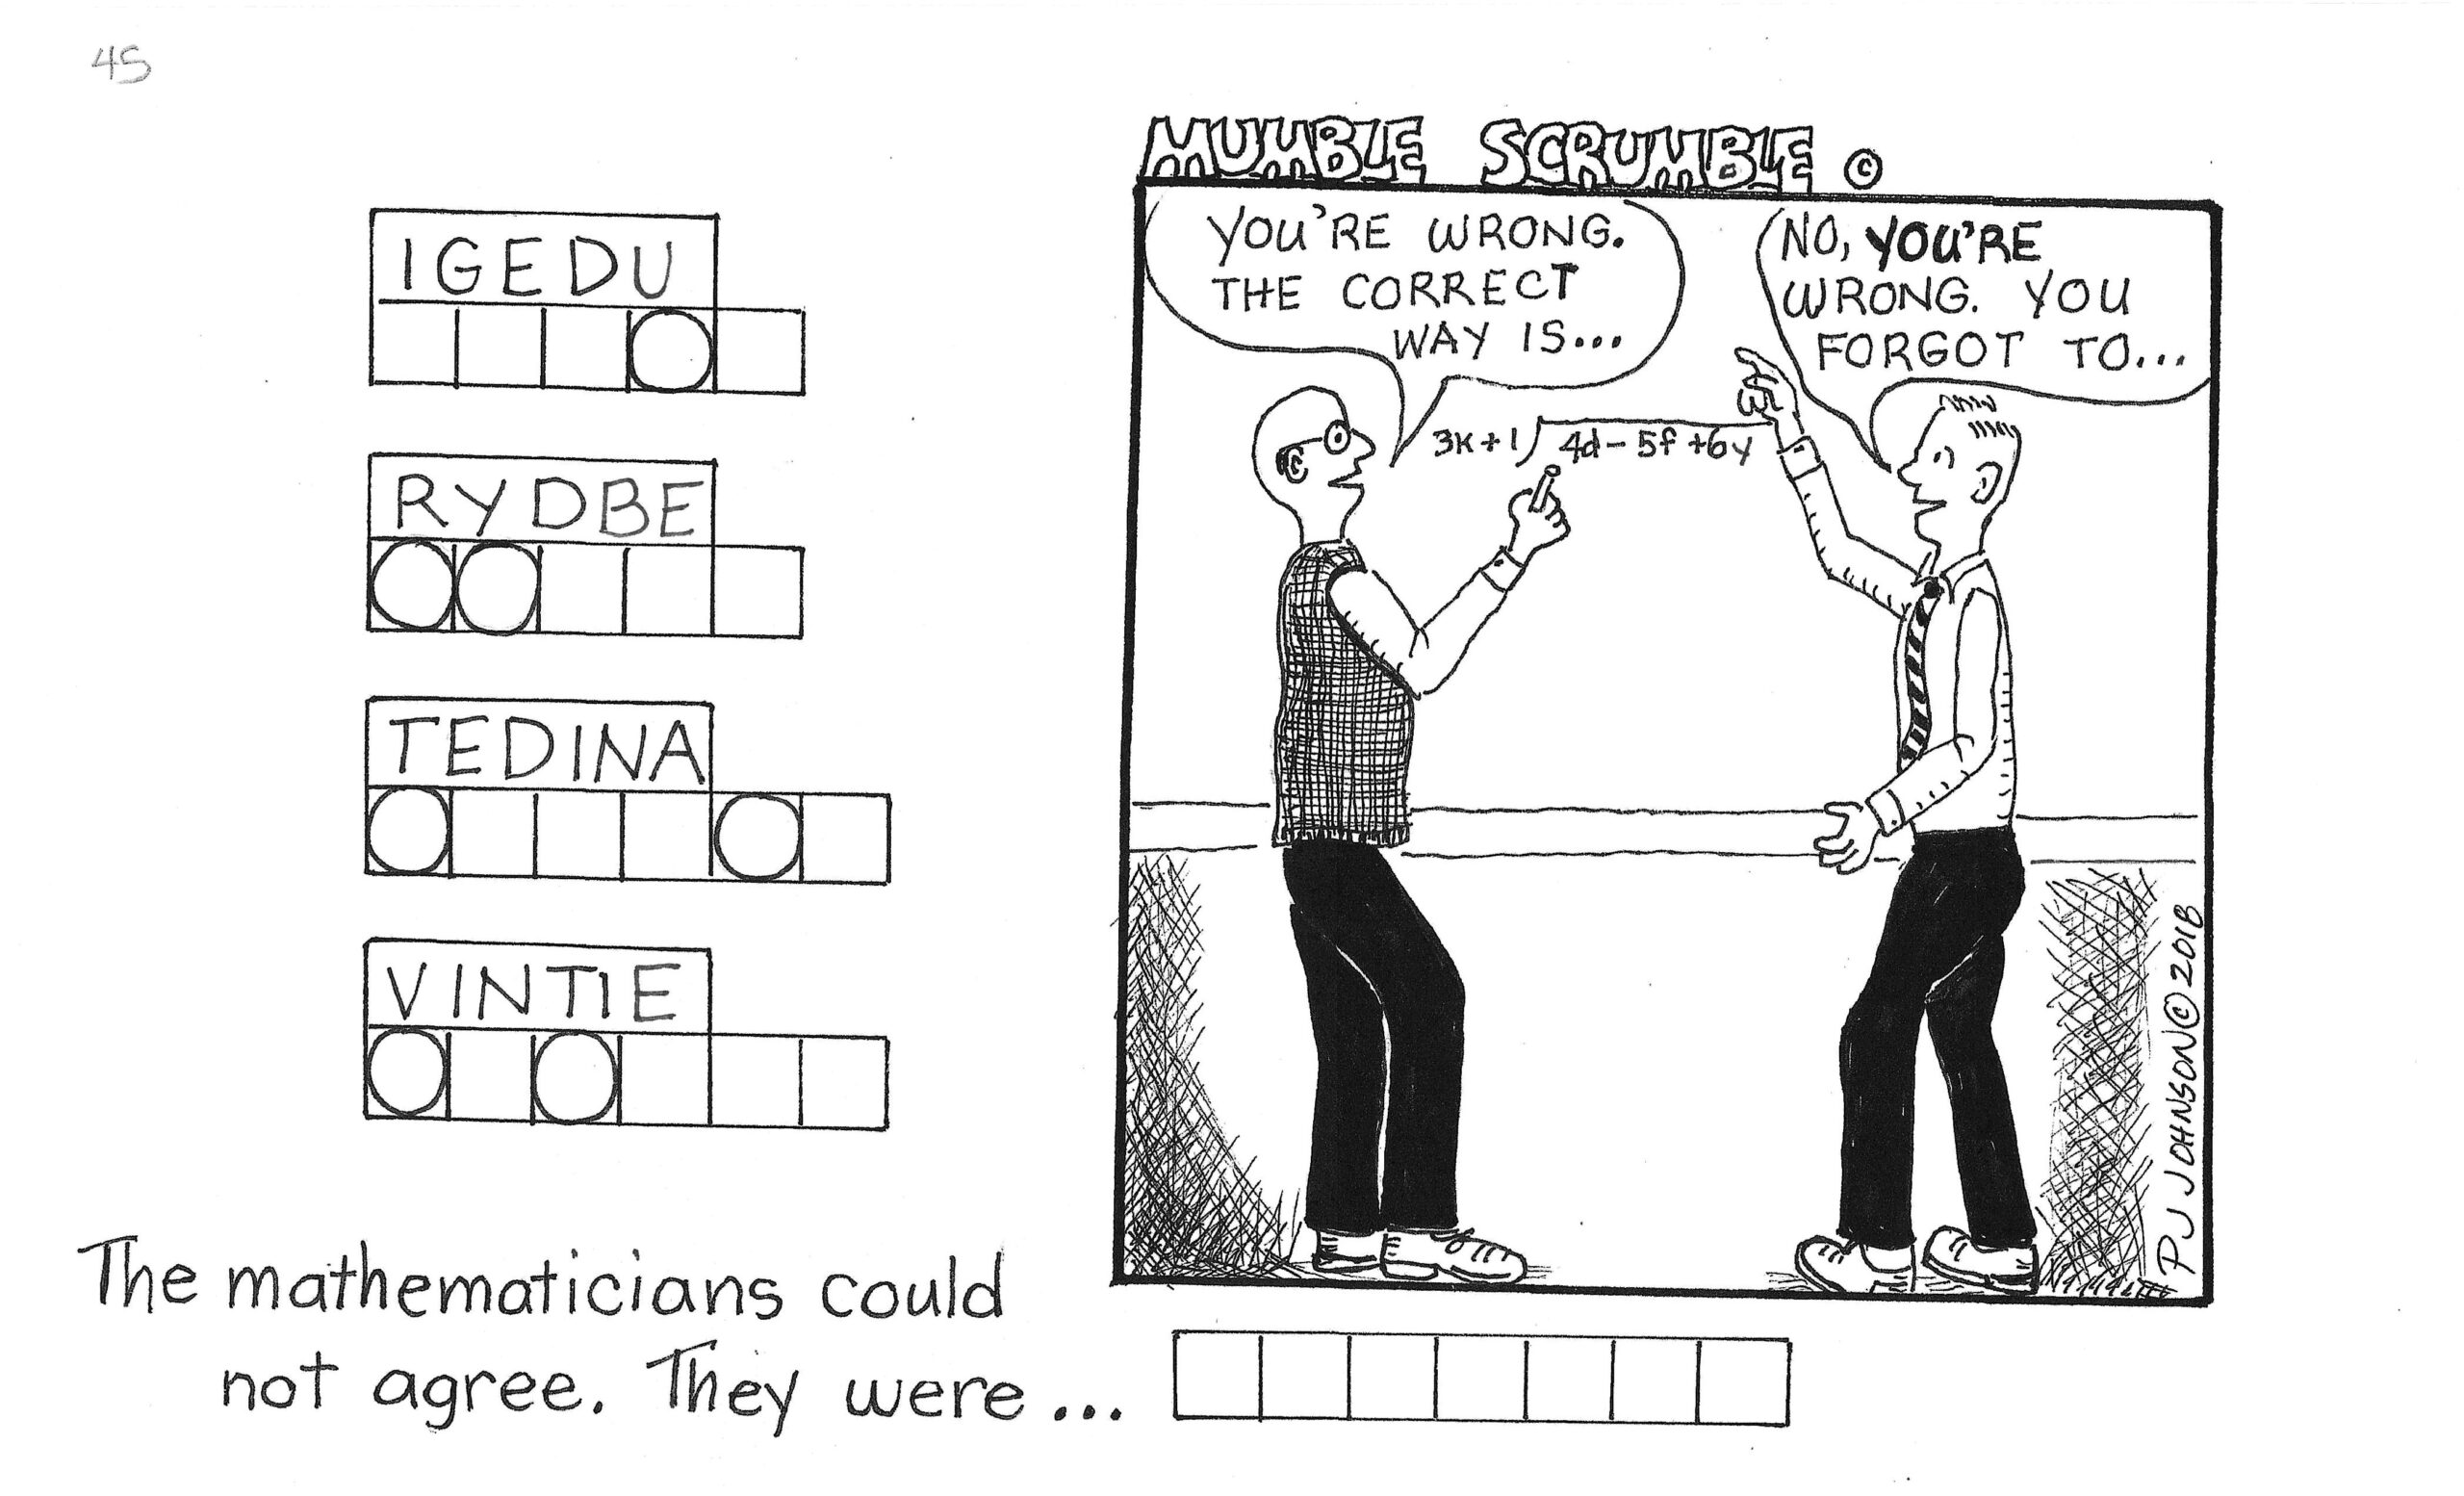 45
MUMBLE SCRUMBLE ©
IGEDU
RYDBE
TEDINA
VINTIE
YOU'RE WRONG.
THE CORRECT
WAY IS...
NO, YOU'RE
WRONG. YOU
FORGOT TO...
3K+1) 4d-5f+6y
PJ JOHNSON © 2018
The mathematicians could
not agree. They were...